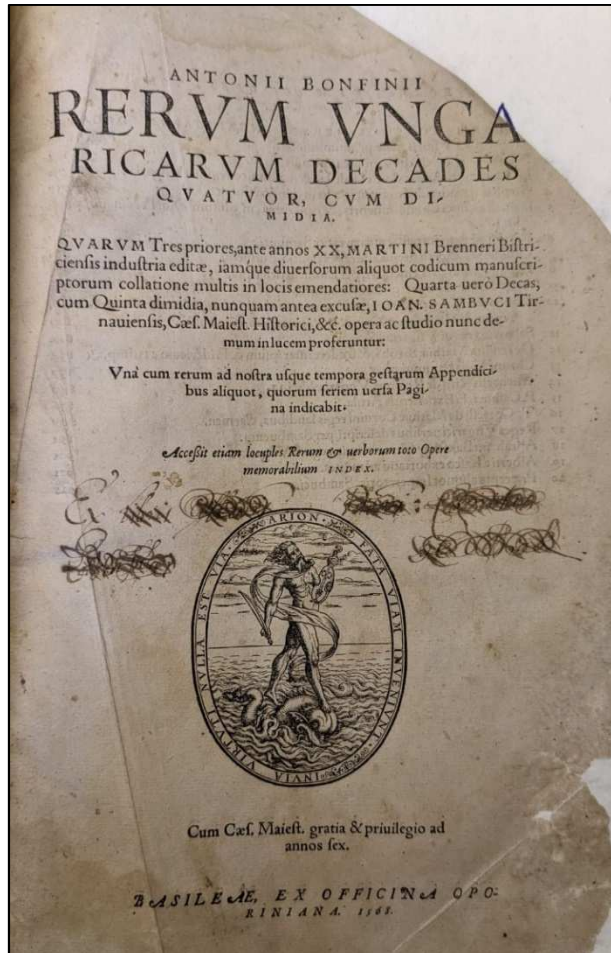 ANTONII BONFINII
RERVM VNGA
RICARVM DECADES
QVATVOR, CVM DI-
MIDIA.
QVARVM Tres priores, ante annos XX, MARTINI Brenneri Biſtri-
cienſis induſtria editæ, iamque diuerſorum aliquot codicum manuſcri-
ptorum collatione multis in locis emendatiores: Quarta uerò Decas,
cum Quinta dimidia, nunquam antea excuſæ, IOAN. SAMBVCI Tir-
nauienſis, Cæſ. Maieſt. Hiſtorici, &c. opera ac ſtudio nunc de-
mum in lucem proferuntur:
Vnà cum rerum ad noſtra uſque tempora geſtarum Appendici-
bus aliquot, quorum ſeriem uerſa Pagi-
na indicabit.
Acceßit etiam locuples Rerum & uerborum toto Opere
memorabilium INDEX.
ARION. FATA VIAM INVENIVNT
INVIA VIRTVTI NVLLA EST VIA.
Cum Cæſ. Maieſt. gratia & priuilegio ad
annos ſex.
BASILEAE, EX OFFICINA OPO-
RINIANA. 1568.